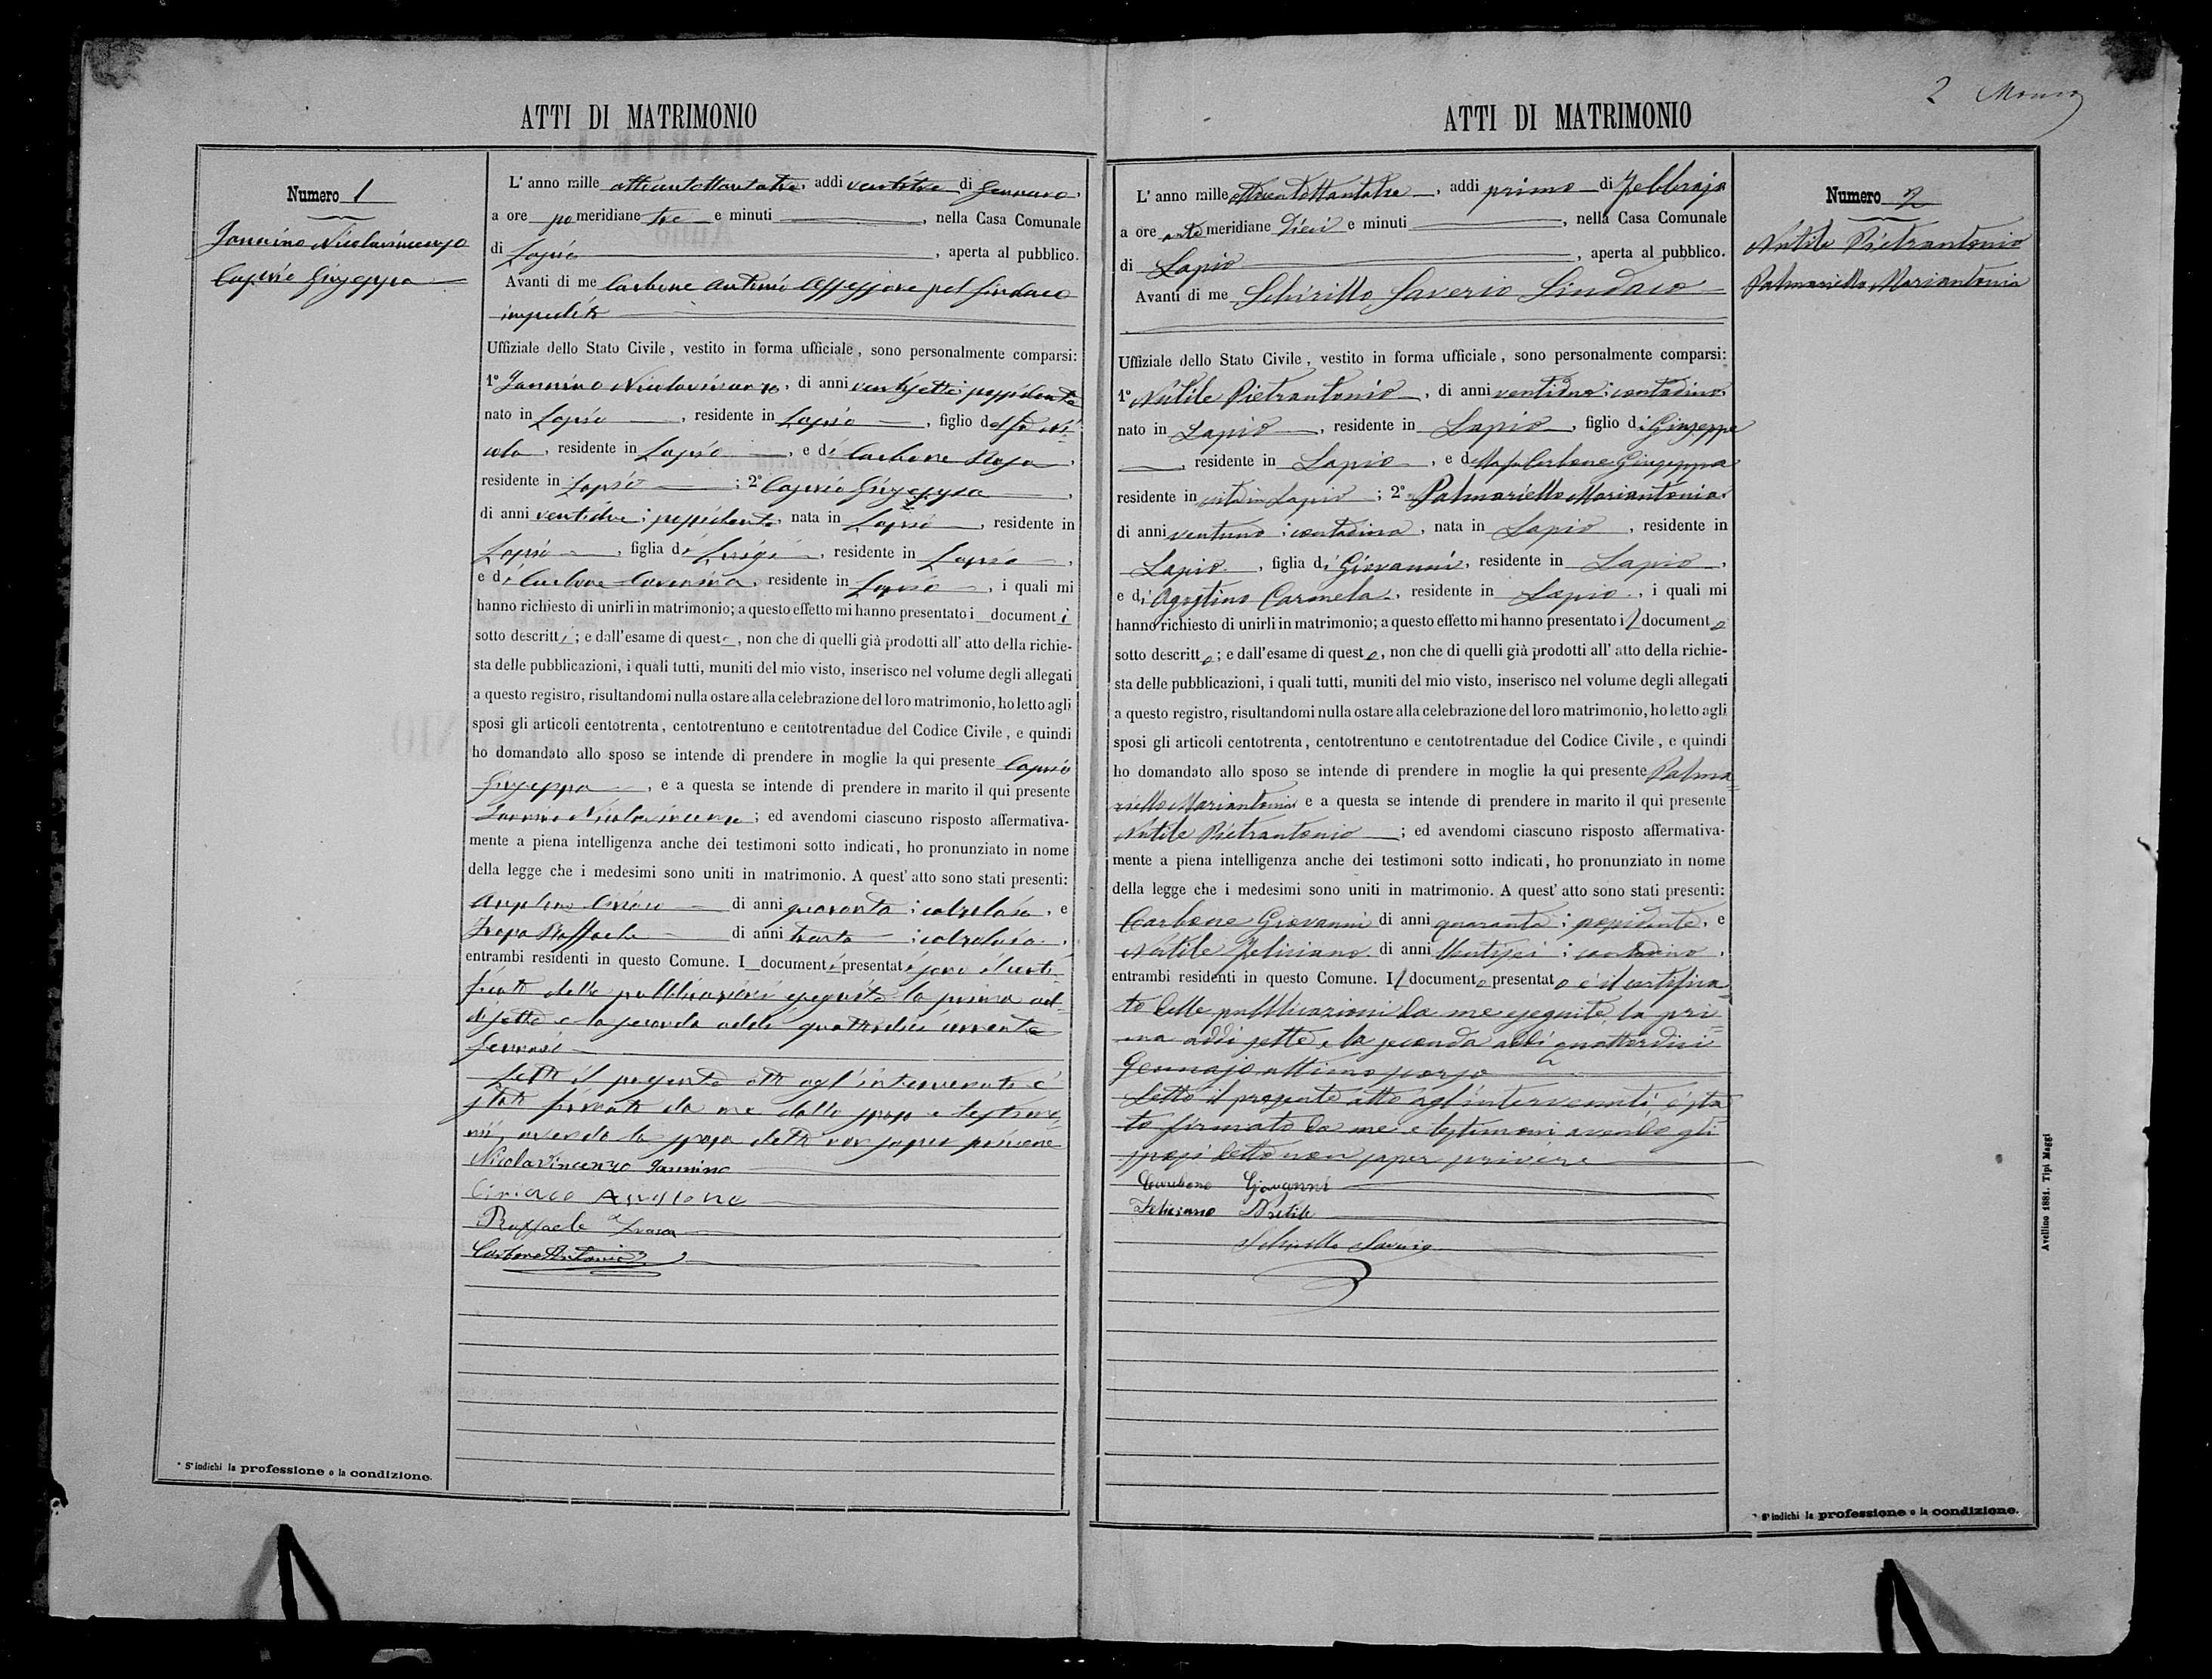 ATTI DI MATRIMONIO
Numero 1
Jannino Nicolavincenzo
Caprio Giuseppa
L' anno mille ottocentottantatre, addi ventitre di Gennaro,
a ore po meridiane tre e minuti , nella Casa Comunale
di Lapio , aperta al pubblico.
Avanti di me Carbone Antonio Assessore pel Sindaco
impedito
Uffiziale dello Stato Civile, vestito in forma ufficiale, sono personalmente comparsi:
1º Jannino Nicolavincenzo, di anni ventisette; possidente
nato in Lapio , residente in Lapio , figlio del fu Ni=
cola, residente in Lapio , e di Carbone Rosa ,
residente in Lapio ; 2º Caprio Giuseppa ,
di anni ventidue; possidente, nata in Lapio , residente in
Lapio , figlia di Luigi , residente in Lapio ,
e di Carbone , residente in Lapio , i quali mi
hanno richiesto di unirli in matrimonio; a questo effetto mi hanno presentato i document i
sotto descritt i; e dall'esame di quest , non che di quelli già prodotti all' atto della richie-
sta delle pubblicazioni, i quali tutti, muniti del mio visto, inserisco nel volume degli allegati
a questo registro, risultandomi nulla ostare alla celebrazione del loro matrimonio, ho letto agli
sposi gli articoli centotrenta, centotrentuno e centotrentadue del Codice Civile, e quindi
ho domandato allo sposo se intende di prendere in moglie la qui presente Caprio
Giuseppa , e a questa se intende di prendere in marito il qui presente
Jannino Nicolavincenzo ; ed avendomi ciascuno risposto affermativa-
mente a piena intelligenza anche dei testimoni sotto indicati, ho pronunziato in nome
della legge che i medesimi sono uniti in matrimonio. A quest' atto sono stati presenti:
Ciriaco di anni quaranta; calzolaio, e
Raffaele di anni trenta ; calzolaio,
entrambi residenti in questo Comune. I document i presentat i sono il certi=
ficato delle pubblicazioni eseguite la prima ad=
di sette e la seconda addi quattordici corrente
Gennaio
Letto il presente atto agl'intervenuti è
stato firmato da me dallo sposo e testimo=
nii, avendo la sposa detto non sapere scrivere
Nicolavincenzo Jannino
Ciriaco
Raffaele
Carbone Antonio
* S' indichi la professione o la condizione.
2
ATTI DI MATRIMONIO
Numero 2
Nutile Pietrantonio
Palmariello Mariantonia
L' anno mille ottocentottantatre , addi primo di Febbrajo
a ore ante meridiane Dieci e minuti , nella Casa Comunale
di Lapio , aperta al pubblico.
Avanti di me Schirillo Saverio Sindaco
Uffiziale dello Stato Civile, vestito in forma ufficiale, sono personalmente comparsi:
1º Nutile Pietrantonio , di anni ventidue; contadino,
nato in Lapio , residente in Lapio , figlio di Giuseppe
, residente in Lapio , e della fu Carbone Giuseppa
residente in vita in Lapio ; 2º Palmariello Mariantonia,
di anni ventuno; contadina, nata in Lapio , residente in
Lapio , figlia di Giovanni, residente in Lapio ,
e di Agostino Carmela , residente in Lapio , i quali mi
hanno richiesto di unirli in matrimonio; a questo effetto mi hanno presentato il document o
sotto descritt o; e dall'esame di quest o, non che di quelli già prodotti all' atto della richie-
sta delle pubblicazioni, i quali tutti, muniti del mio visto, inserisco nel volume degli allegati
a questo registro, risultandomi nulla ostare alla celebrazione del loro matrimonio, ho letto agli
sposi gli articoli centotrenta, centotrentuno e centotrentadue del Codice Civile, e quindi
ho domandato allo sposo se intende di prendere in moglie la qui presente Palma=
riello Mariantonia e a questa se intende di prendere in marito il qui presente
Nutile Pietrantonio ; ed avendomi ciascuno risposto affermativa-
mente a piena intelligenza anche dei testimoni sotto indicati, ho pronunziato in nome
della legge che i medesimi sono uniti in matrimonio. A quest' atto sono stati presenti:
Carbone Giovanni di anni quaranta; possidente, e
Nutile Feliciano di anni Ventisei; contadino,
entrambi residenti in questo Comune. Il document o presentat o è il certifica=
to delle pubblicazioni da me eseguite la pri=
ma addi sette, la seconda addi quattordici
Gennajo ultimo scorso
Letto il presente atto agl'intervenuti è sta=
to firmato da me e testimoni avendo gli
sposi detto non saper scrivere
Carbone Giovanni
Feliciano Nutile
Schirillo Saverio
* S' indichi la professione o la condizione.
Avellino 1881. Tipi Maggi